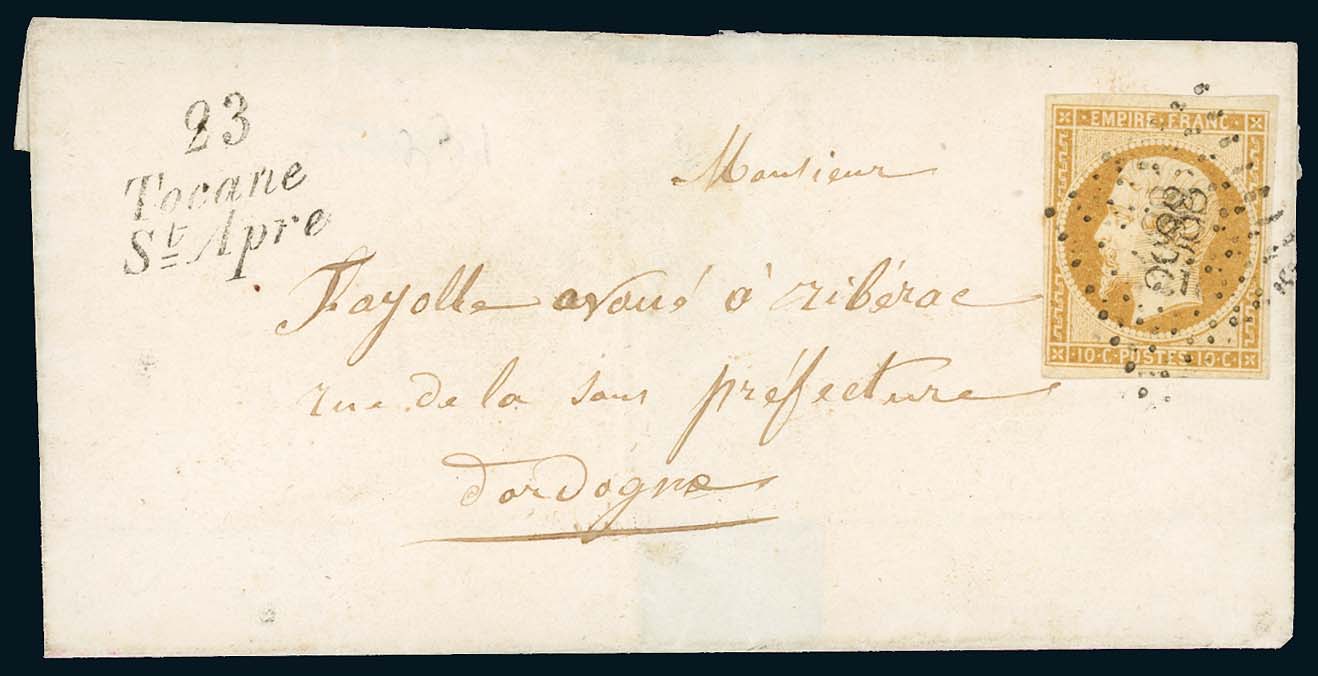 23
Tocane
St Apre
EMPIRE FRANC
2988
10·C·POSTES 10·C·
Monsieur
Fayolle avoué à ribérac
rue de la sous préfecture
dordogne